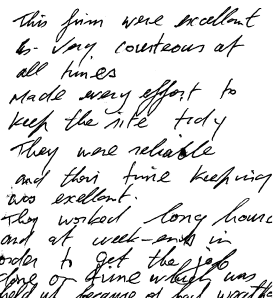 This firm were excellent
& very courteous at
all times
Made every effort to
keep the site tidy
They were reliable
and their time keeping
was exellent.
They worked long hours
and at week-ends in
order to get the job
done on time which was
held up because of bad weather